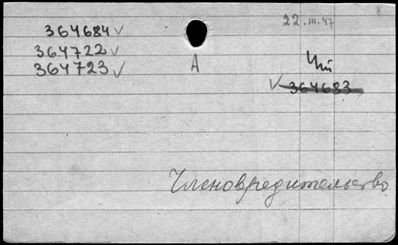 22.III.47
364684 ✓
364722 ✓
364723 ✓
А
✓ 364683
Членовредительство